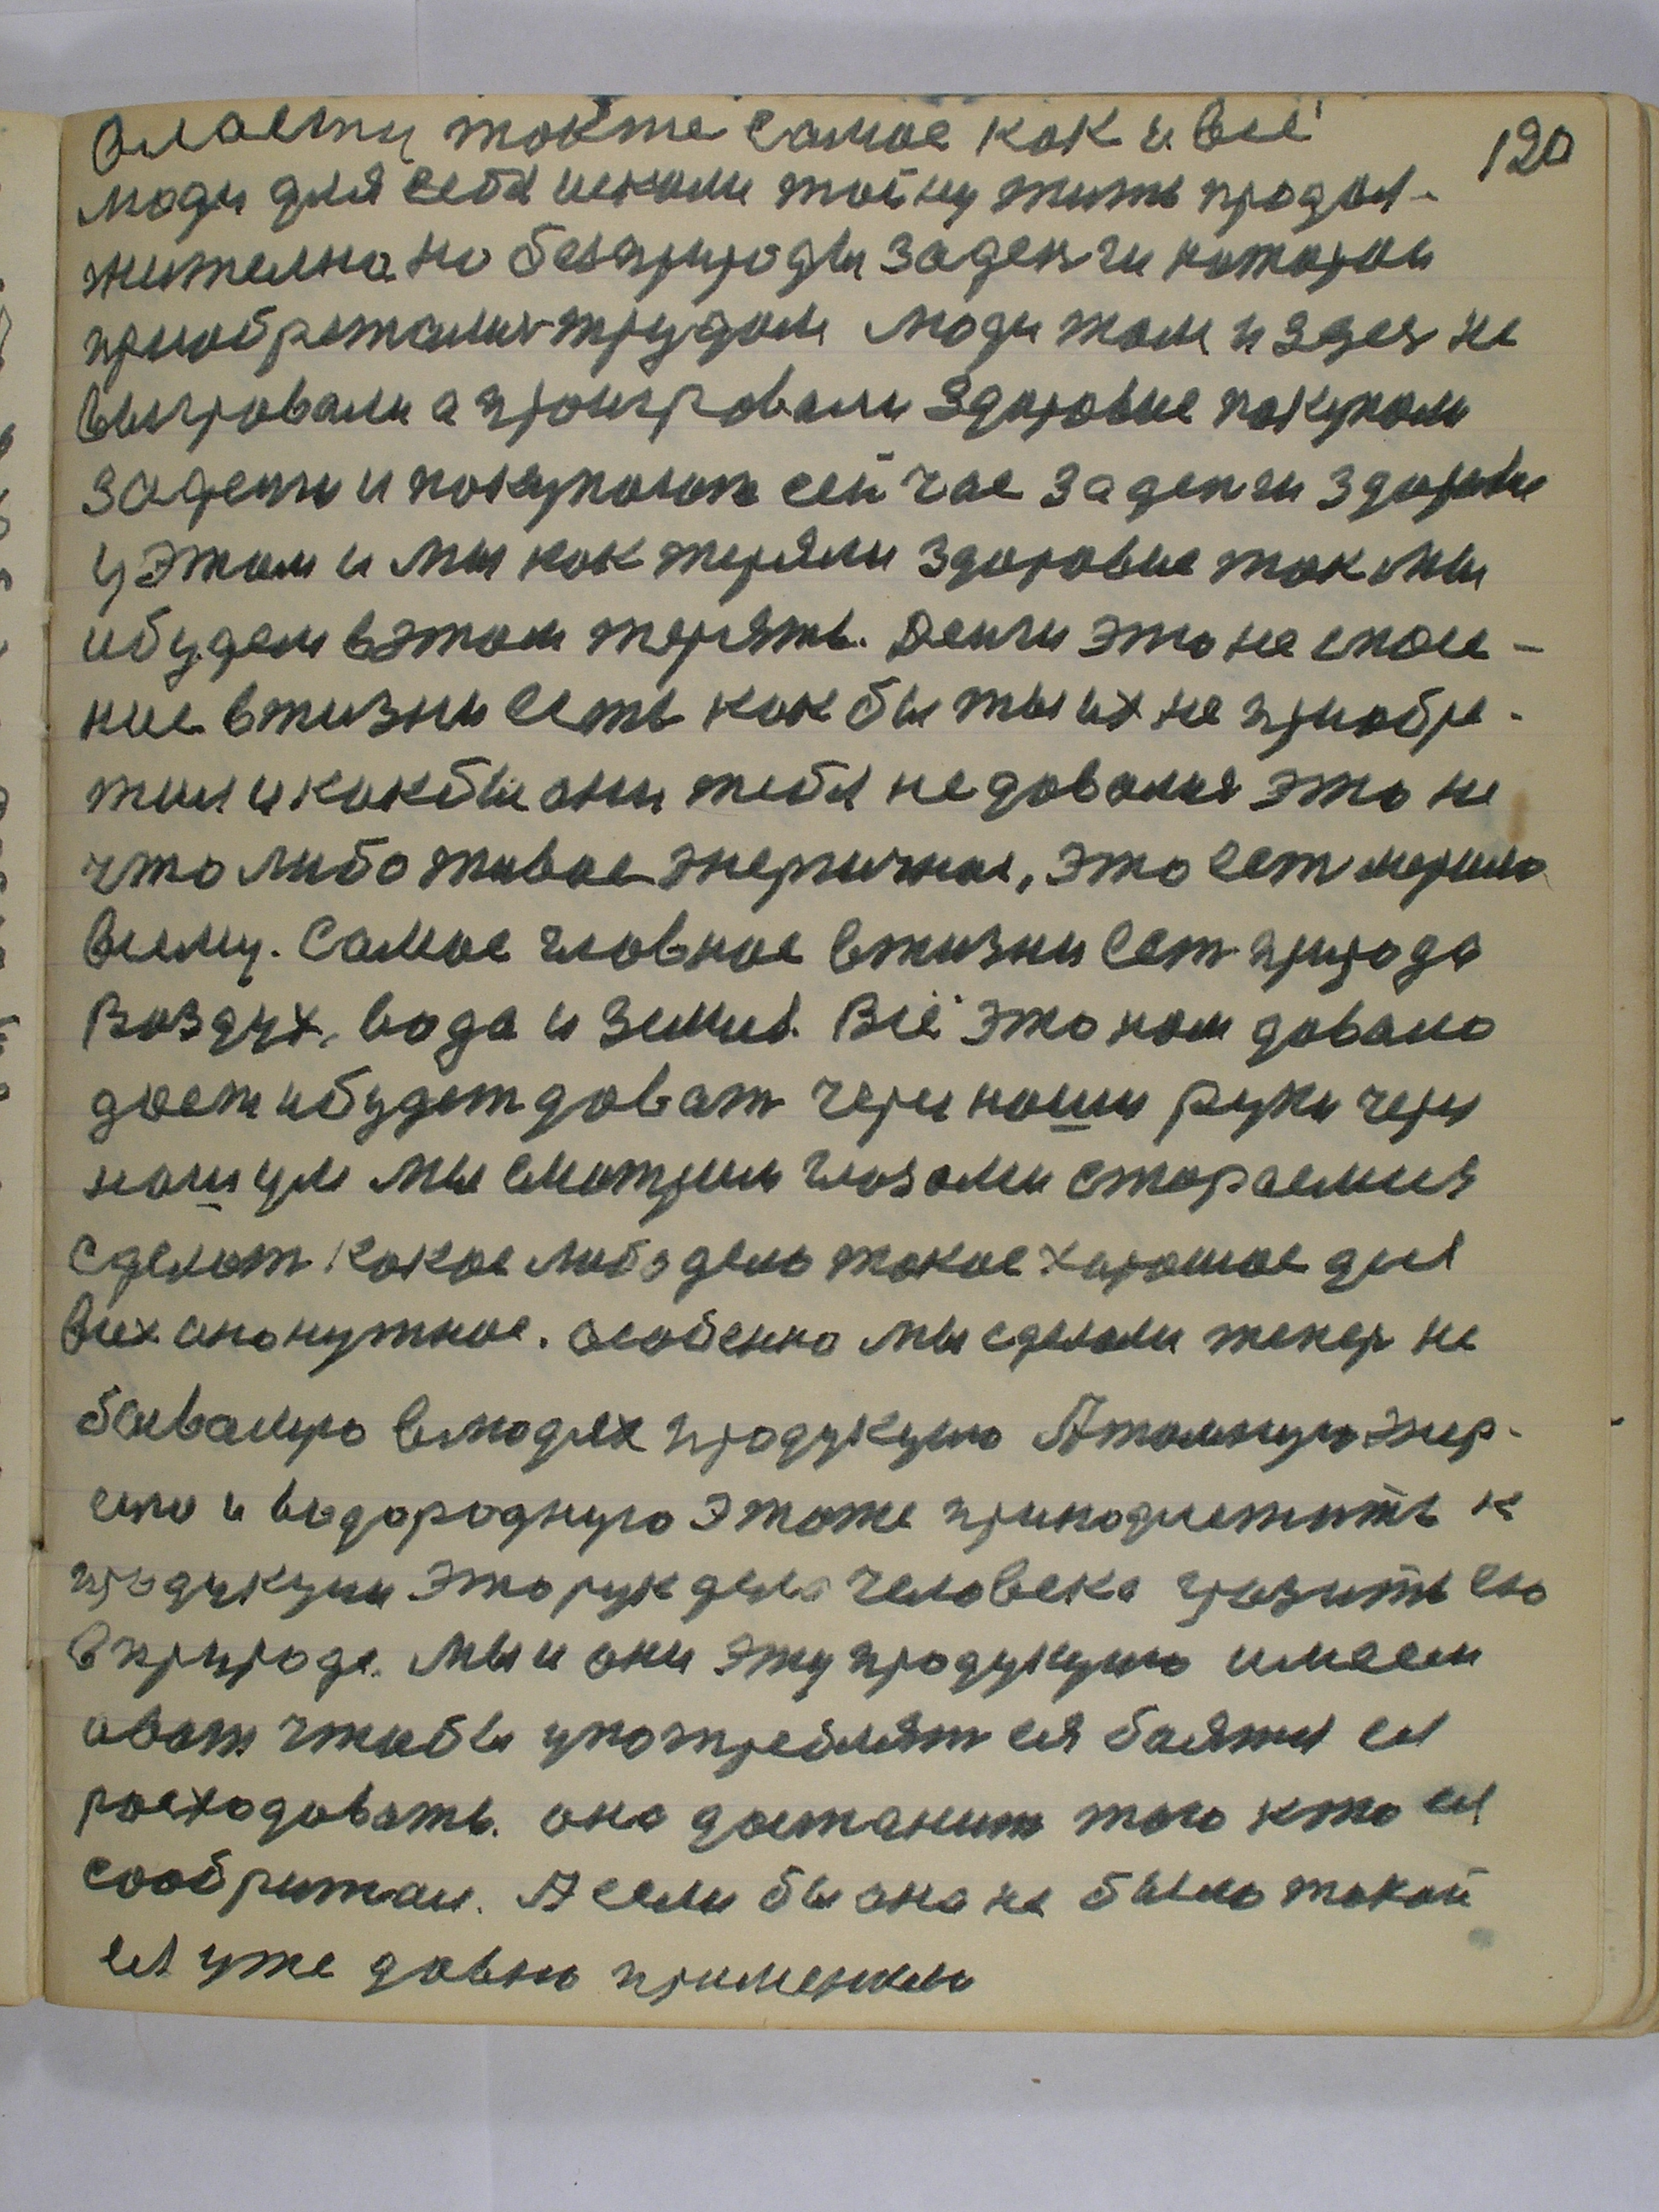 власти, токже самое как и всё 120
люди для себя искали тайну жить продол-
жително но безприроды за денги которои
приобреталис трудом люди там и здес не
выгровали а проигровали здоровие покупали
заденги и покупают сейчас заденги здоровие
у этом и мы как теряли здоровие так мы
и будем вэтом терять. Денги это не спасе-
ние вжизни есть как бы ты их не приобре-
тил и какбы они тебя не довался это не
что либо живое энергичное, это ест мерило
всему. Самое главное вжизни ест природа
Воздух, вода и земля. Всё это нам давало
дает и будет доват через наши руки через
наш ум мы смотрим глазами стораемся
сделат какое либо дело такое хорошое для
всех оно нужное. особенно мы сделали тепер не
бывалую влюдях продукцию Атомную энер-
гию и водородную это тоже приподлежить к
продукции это рук дела человека грозить ею
вприроде. Мы и они эту продукцию имеем
авот чтобы употреблят ея боятся ея
росходовать. она достанит того кто ея
сообритал. А если бы она не было такой
ея уже довно применили